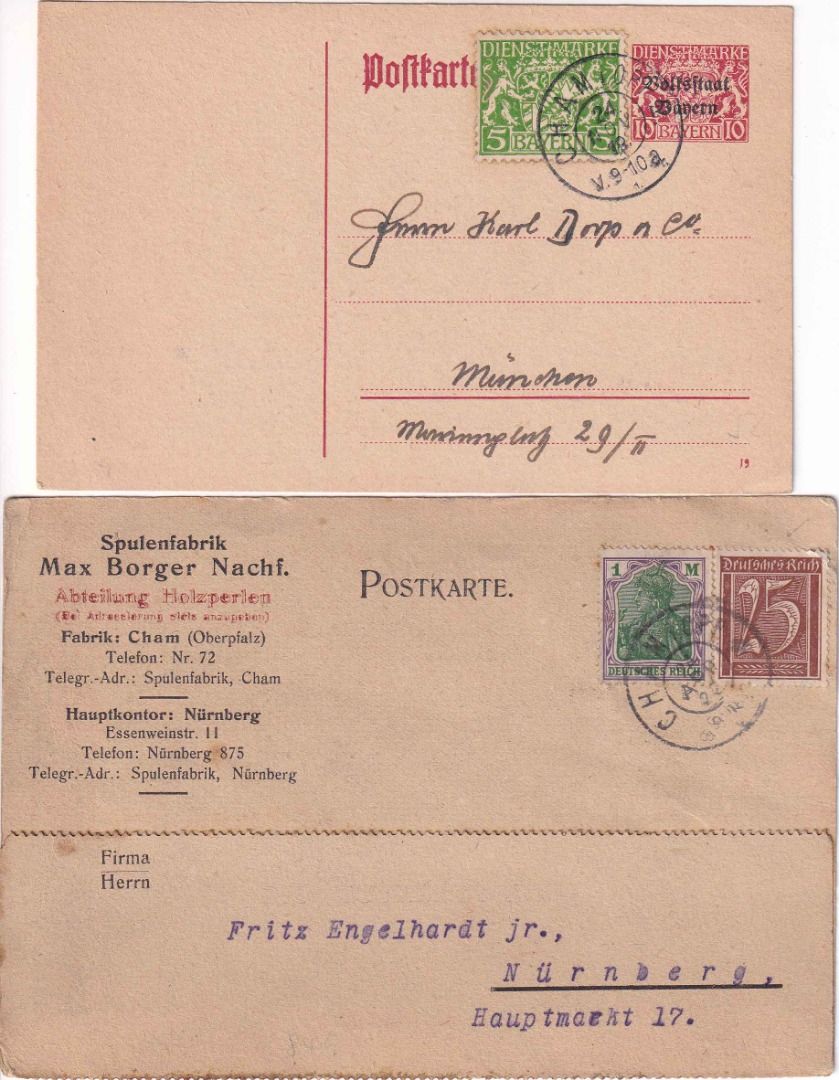 Postkarte
DIENSTMARKE
5 BAYERN 5
DIENSTMARKE
Volksstaat
Bayern
10 BAYERN 10
CHAM
24
V.9-10
Herrn Karl Dorp & Co.
München
Marienplatz 29/II
19
Spulenfabrik
Max Borger Nachf.
Abteilung Holzperlen
(Bei Adressierung stets anzugeben)
Fabrik: Cham (Oberpfalz)
Telefon: Nr. 72
Telegr.-Adr.: Spulenfabrik, Cham
Hauptkontor: Nürnberg
Essenweinstr. 11
Telefon: Nürnberg 875
Telegr.-Adr.: Spulenfabrik, Nürnberg
POSTKARTE.
1 M
DEUTSCHES REICH
Deutsches Reich
25
CHAM
Firma
Herrn
Fritz Engelhardt jr.,
Nürnberg,
Hauptmarkt 17.